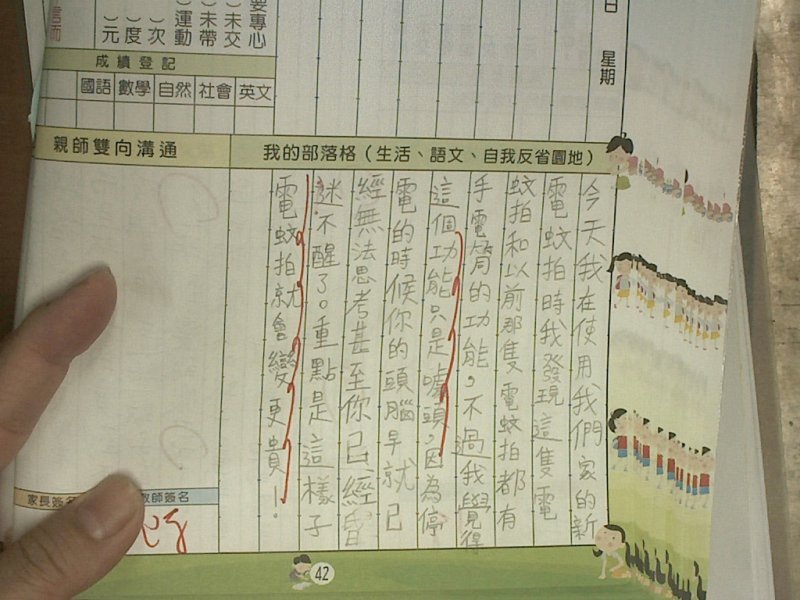 日　星期
要專心
）未交
）未帶
）運動
）次
）度
）元
言而
成績登記
國語 數學 自然 社會 英文
親師雙向溝通
我的部落格（生活、語文、自我反省園地）
今天我在使用我們家的新
電蚊拍時我發現這隻電
蚊拍和以前那隻電蚊拍都有
手電筒的功能，不過我覺得
這個功能只是噱頭，因為停
電的時候你的頭腦早就已
經無法思考甚至你已經昏
迷不醒了。重點是這樣子
電蚊拍就會變更貴！
家長簽
教師簽名
42